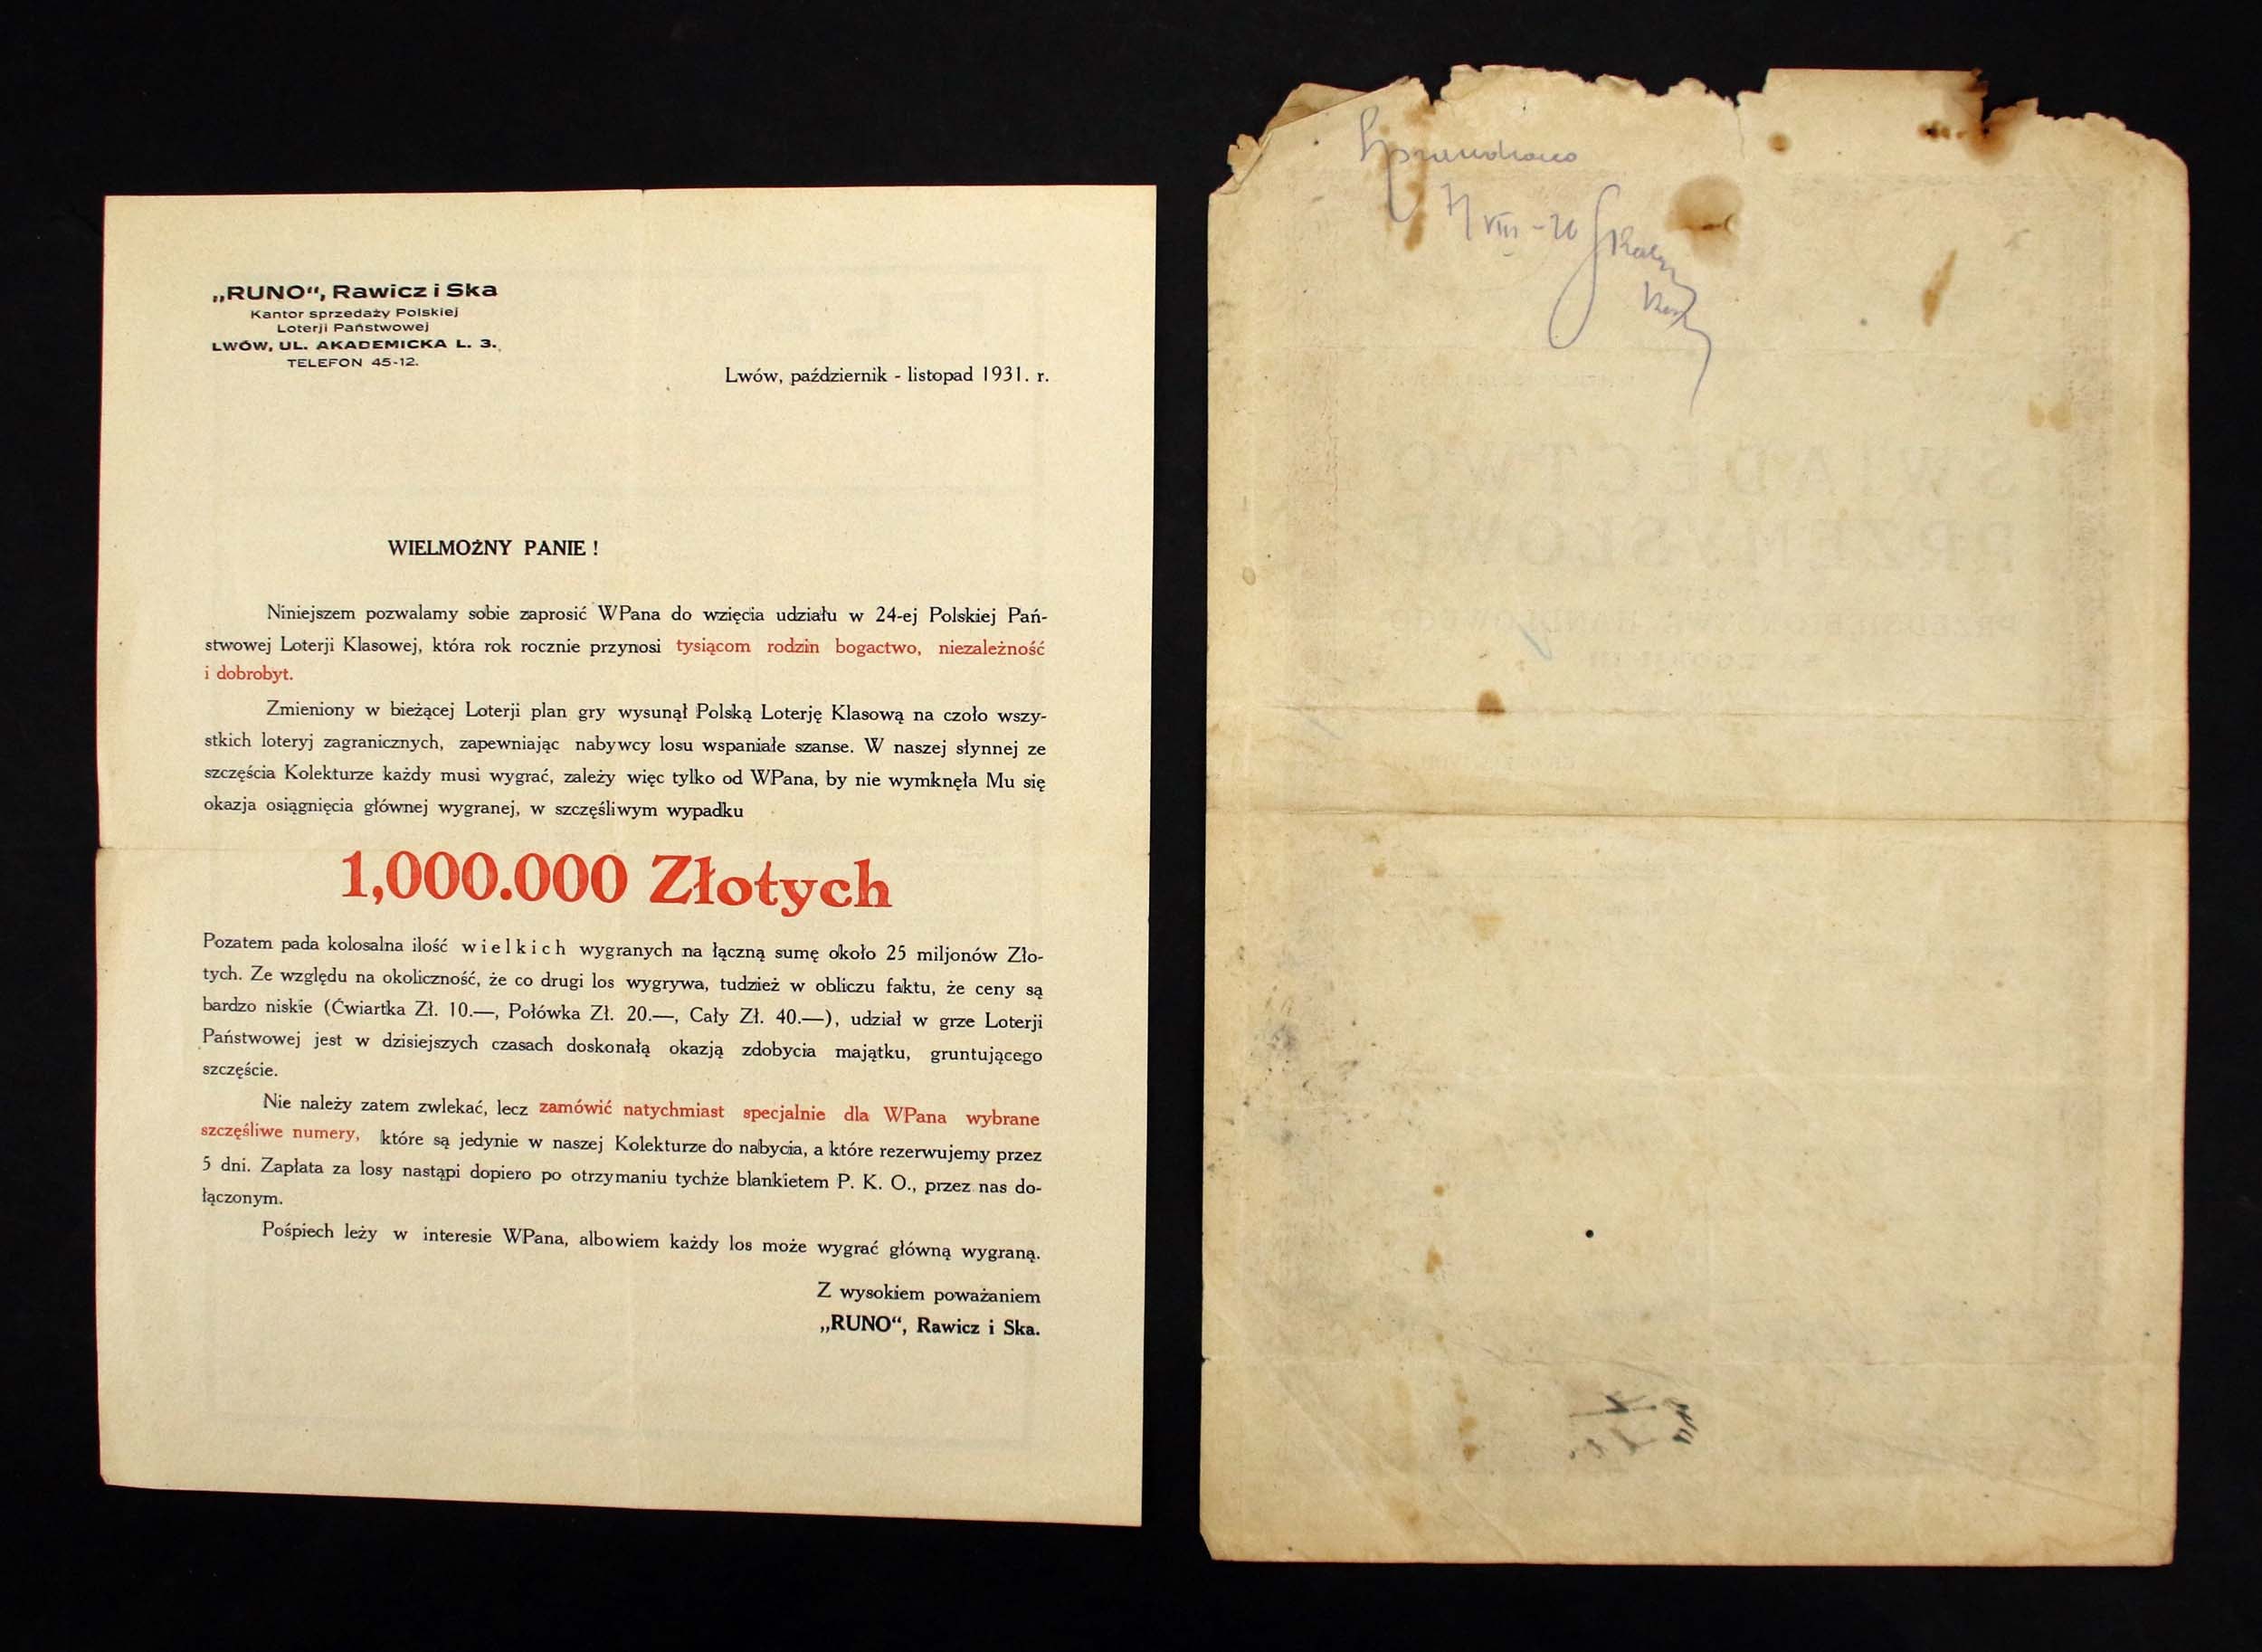 „RUNO“, Rawicz i Ska
Kantor sprzedaży Polskiej
Loterji Państwowej
LWÓW, UL. AKADEMICKA L. 3.
TELEFON 45-12.
Lwów, październik - listopad 1931. r.
WIELMOŻNY PANIE !
Niniejszem pozwalamy sobie zaprosić WPana do wzięcia udziału w 24-ej Polskiej Pań-
stwowej Loterji Klasowej, która rok rocznie przynosi tysiącom rodzin bogactwo, niezależność
i dobrobyt.
Zmieniony w bieżącej Loterji plan gry wysunął Polską Loterję Klasową na czoło wszy-
stkich loteryj zagranicznych, zapewniając nabywcy losu wspaniałe szanse. W naszej słynnej ze
szczęścia Kolekturze każdy musi wygrać, zależy więc tylko od WPana, by nie wymknęła Mu się
okazja osiągnięcia głównej wygranej, w szczęśliwym wypadku
1,000.000 Złotych
Pozatem pada kolosalna ilość wielkich wygranych na łączną sumę około 25 miljonów Zło-
tych. Ze względu na okoliczność, że co drugi los wygrywa, tudzież w obliczu faktu, że ceny są
bardzo niskie (Ćwiartka Zł. 10.—, Połówka Zł. 20.—, Cały Zł. 40.—), udział w grze Loterji
Państwowej jest w dzisiejszych czasach doskonałą okazją zdobycia majątku, gruntującego
szczęście.
Nie należy zatem zwlekać, lecz zamówić natychmiast specjalnie dla WPana wybrane
szczęśliwe numery, które są jedynie w naszej Kolekturze do nabycia, a które rezerwujemy przez
5 dni. Zapłata za losy nastąpi dopiero po otrzymaniu tychże blankietem P. K. O., przez nas do-
łączonym.
Pośpiech leży w interesie WPana, albowiem każdy los może wygrać główną wygraną.
Z wysokiem poważaniem
„RUNO“, Rawicz i Ska.
ŚWIADECTWO
PRZEMYSŁOWE